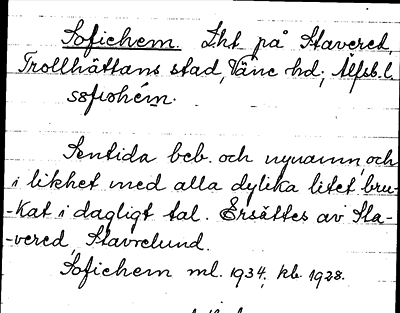 Sofiehem. Lht på Stavered,
Trollhättans stad, Väne hd, Älfsb. l.
sofiohém.
Sentida beb. och nynamn, och
i likhet med alla dylika litet bru-
-kat i dagligt tal. Ersättes av Sta-
-vered, Stavrelund.
Sofiehem ml. 1934, kb. 1928.